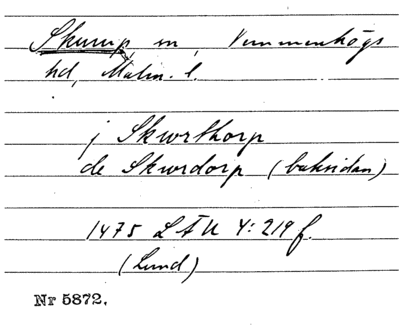 Skurup, sn, Vemmenhögs
hd, Malm. l.
j Skurthorp
de Skurdorp (baksidan)
1475 LÄU 4:219 f.
(Lund)
Nr 5872.